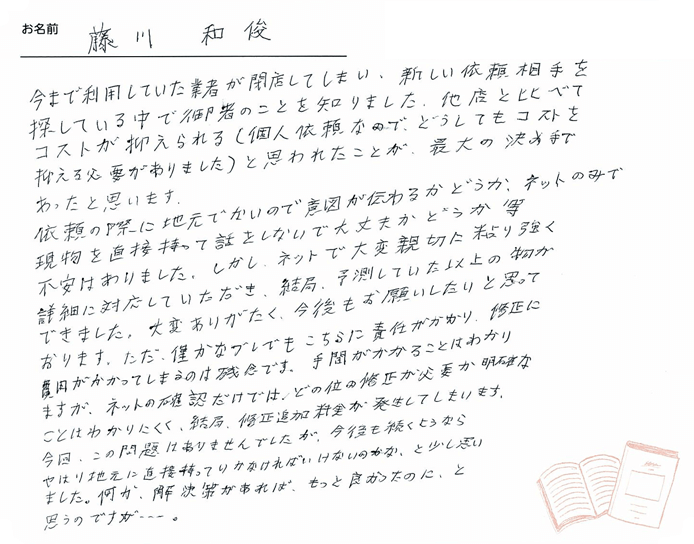 お名前 藤川 和俊
今まで利用していた業者が閉店してしまい、新しい依頼相手を
探している中で御社のことを知りました。他店と比べて
コストが抑えられる(個人依頼なので、どうしてもコストを
抑える必要がありました)と思われたことが、最大の決め手で
あったと思います。
依頼の際に地元でないので意図が伝わるかどうか、ネットのみで
現物を直接持って話をしないで大丈夫かどうか等
不安はありました。しかし、ネットで大変親切に粘り強く
詳細に対応していただき、結局、予測していた以上の物が
できました。大変ありがたく、今後もお願いしたいと思って
おります。ただ、僅かなブレでもこちらに責任がかかり、修正に
費用がかかってしまうのは残念です。手間がかかることはわかり
ますが、ネットの確認だけでは、どの位の修正が必要か明確な
ことはわかりにくく、結局、修正追加料金が発生してしまいます。
今回、この問題はありませんでしたが、今後も続くようなら
やはり地元に直接持っていかなければいけないのかな、と少し思い
ました。何か、解決策があれば、もっと良かったのに、と
思うのですが----。